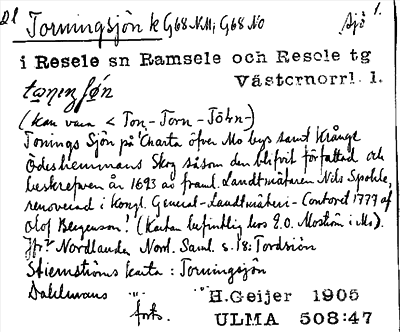 Dl Torningsjön k G68 NM; G68 No Sjö 1.
i Resele sn Ramsele och Resele tg
Västernorrl. l.
(kan vara < Ton- Torn- Törn-)
Tonings Sjön på "Charta öfver Mo bys samt Krånge
Ödeshemmans Skog såsom den blifvit författad och
beskrefven år 1693 av framl. Landtmätaren Nils Spohle,
renoverad i Kongl. General-Landtmäteri-Contoret 1777 af
Olof Bergenson! (Kartan befintlig hos E.O. Moström i Mo).
Jfr Nordlander Norrl. Saml. s. 18: Tordsiön
Stiernströms karta: Torningsjön
Dahlmans " "
forts.
H.Geijer 1905
ULMA 508:47